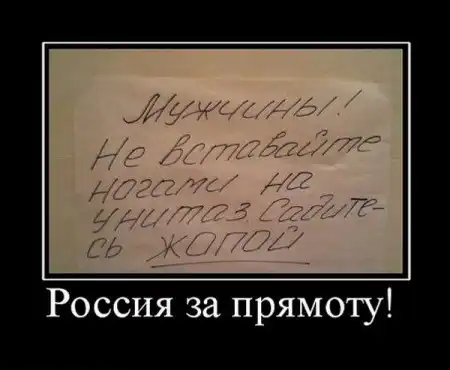 Мужчины!
Не вставайте
ногами на
унитаз. Садите-
сь жопой
Россия за прямоту!